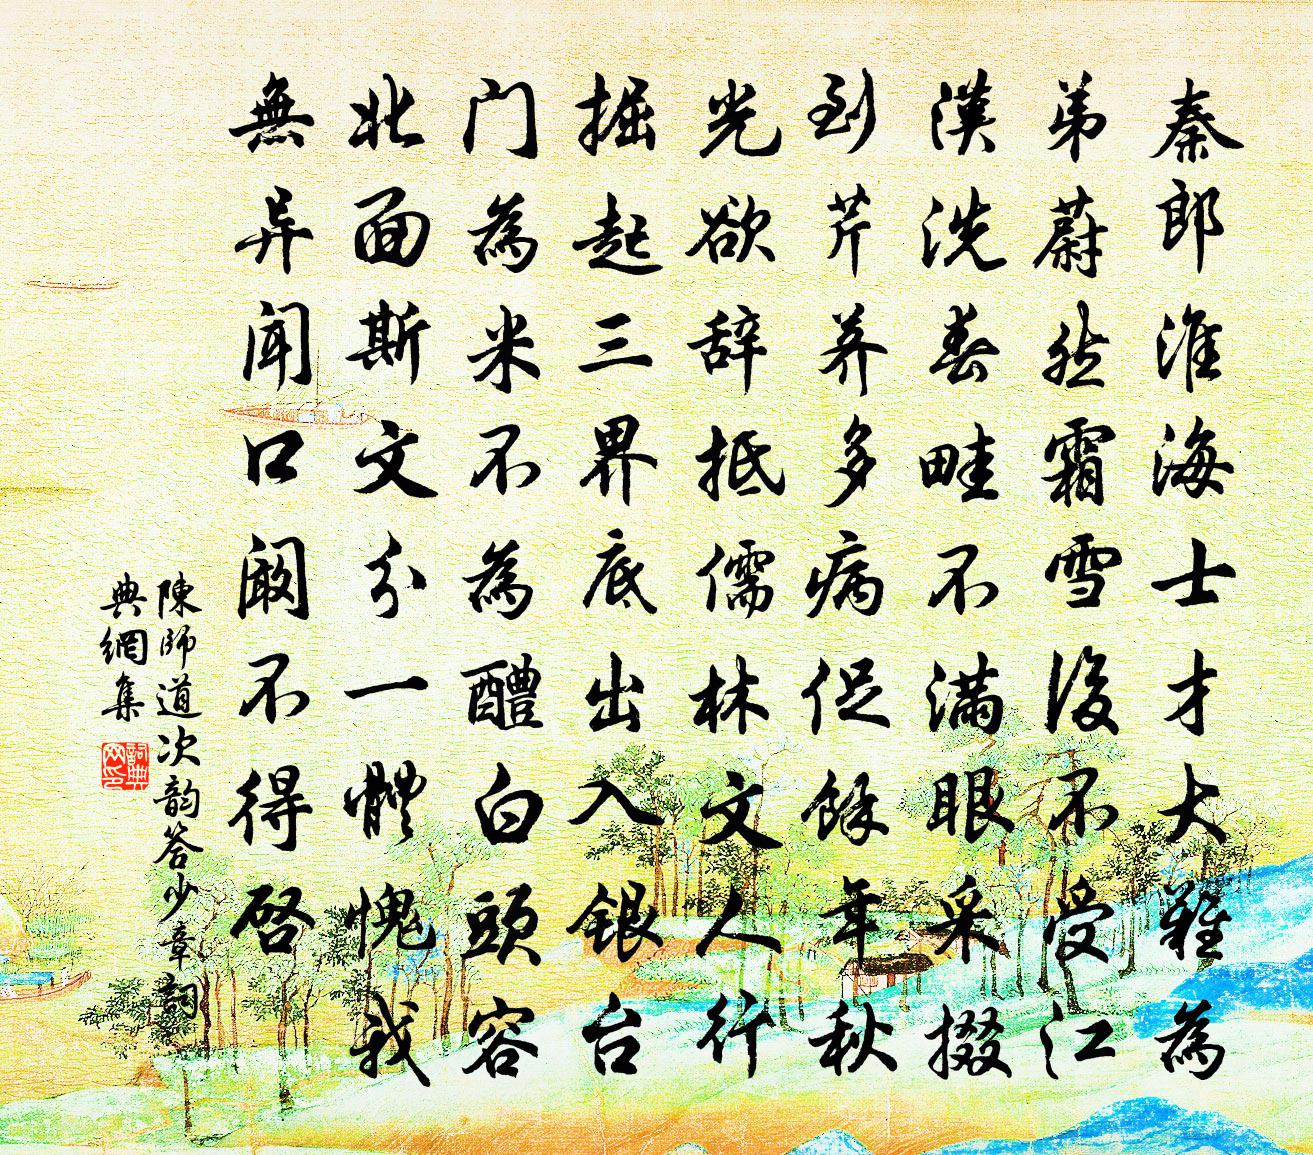 秦郎淮海士才大難為
弟蔚然霜雪後不受江
漢洗春畦不滿眼采掇
到芹荞多病促餘年秋
光欲辞抵儒林文人行
掘起三界底出入銀台
门為米不為醴白頭容
北面斯文分一體愧我
無异闻口阚不得啓
陳師道次韵答少章詞
典網集
詞典
网印